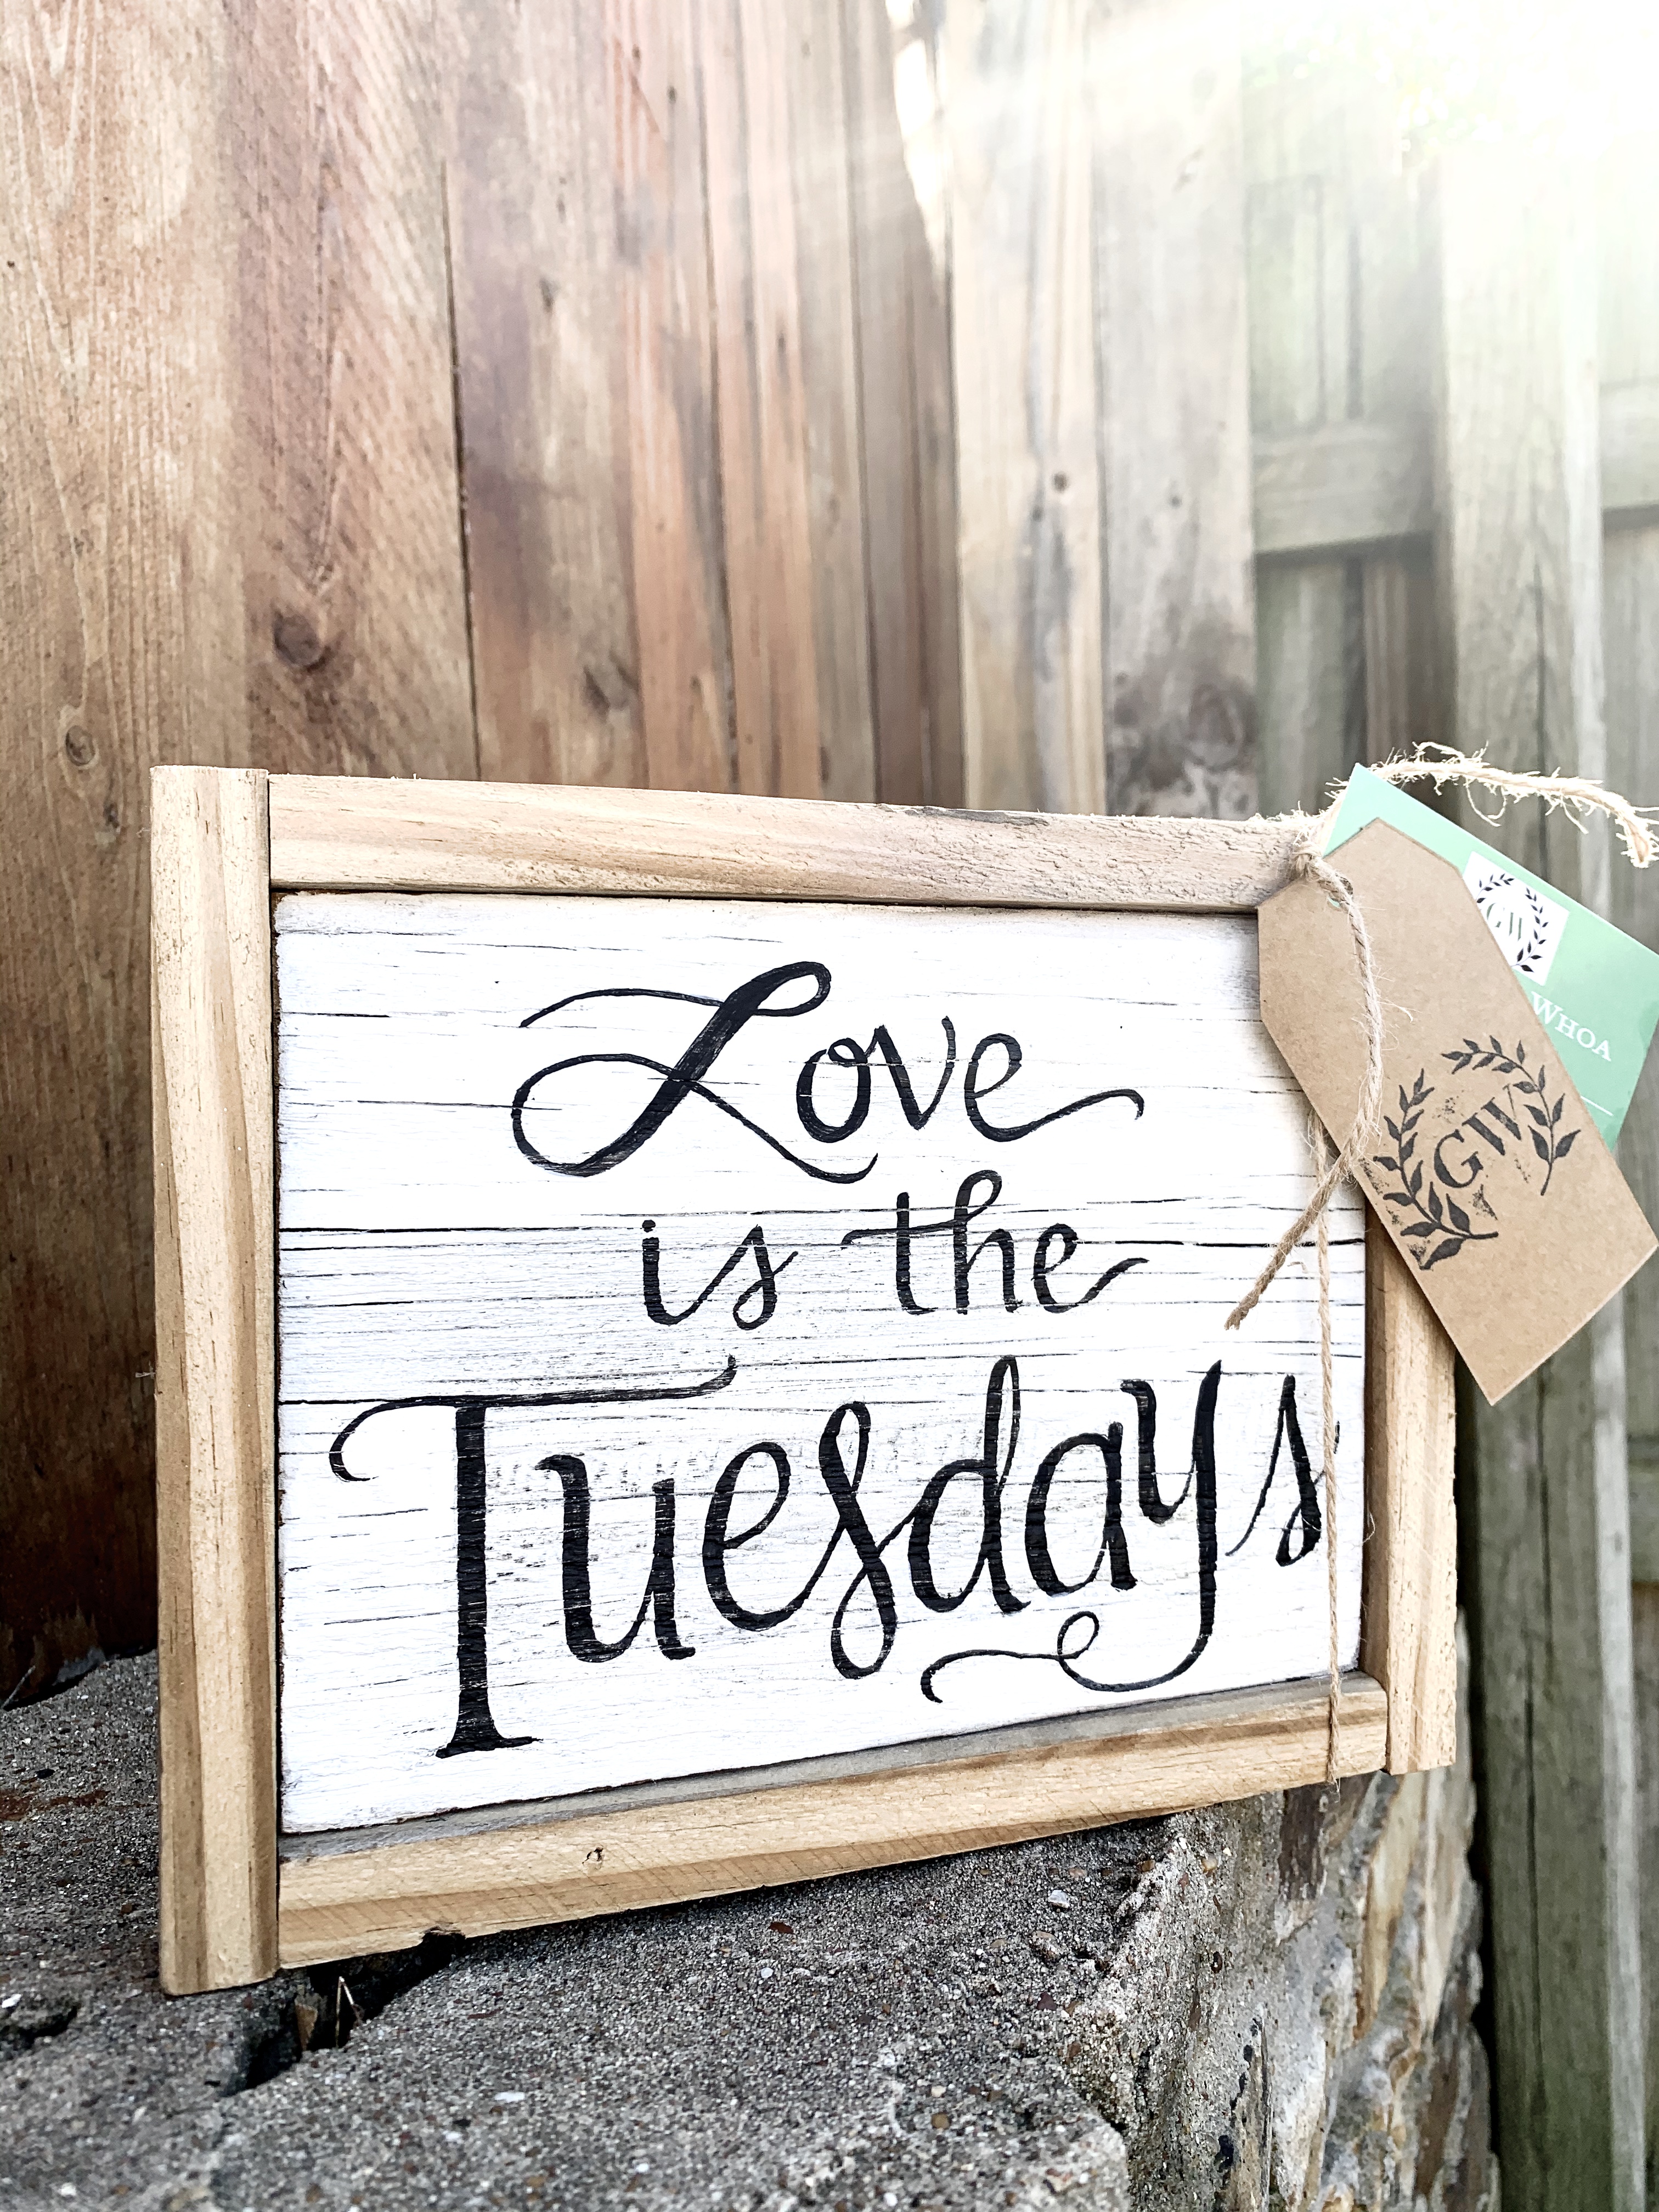 Love
is the
Tuesdays
GW
WHOA
GW